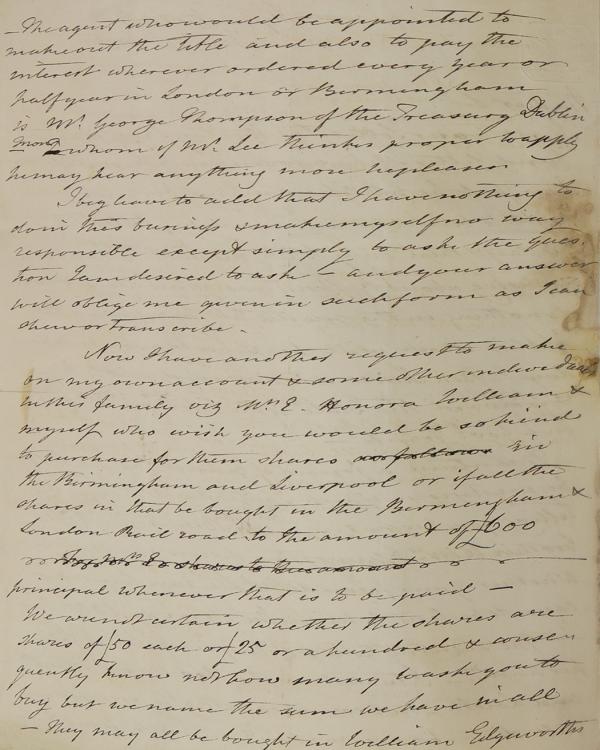 — The agent who would be appointed to
make out the title and also to pay the
interest wherever ordered every year or
half year in London or Birmingham
is Mr. George Thompson of the Treasury Dublin
to whom if Mr. Lee thinks proper to apply
he may hear anything more he pleases
I beg leave to add that I have nothing to
do in this business & make myself no way
responsible except simply to ask the ques-
tion I am desired to ask — and your answer
will oblige me given in such form as I can
shew or transcribe.
Now I have another request to make
on my own account & some other individuals
in this family viz Mrs E. Honora William &
myself who wish you would be so kind
to purchase for them shares as follows Ein
the Birmingham and Liverpool or if all the
shares in that be bought in the Birmingham &
London Rail road to the amount of £600
for Mrs E shares to the amount
principal whenever that is to be paid —
We are not certain whether the shares are
shares of £50 each or £25 or a hundred & conse
quently know not how many to ask you to
buy but we name the sum we have in all
— They may all be bought in William Edgeworth's